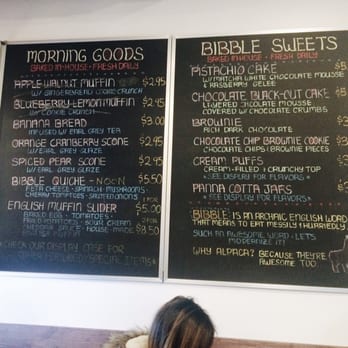 MORNING GOODS
BAKED IN-HOUSE • FRESH DAILY
APPLE WALNUT MUFFIN $2.45
BLUEBERRY LEMON MUFFIN $2.45
W/ COOKIE CRUNCH
BANANA BREAD $3.00
INFUSED W/ EARL GREY TEA
ORANGE CRANBERRY SCONE $2.45
W/ EARL GREY GLAZE
SPICED PEAR SCONE $2.45
W/ EARL GREY GLAZE
BIBBLE QUICHE $5.50
FETA CHEESE • SPINACH • MUSHROOMS •
CHERRY TOMATOES • SUNFLOWER
ENGLISH MUFFIN SLIDER $5.00
BAKED EGG • TOMATOES •
SOUR CREAM
SAUCE • HOUSE-MADE $3.50
CHECK OUR DISPLAY CASE FOR
SPECIAL ITEMS
BIBBLE SWEETS
BAKED IN-HOUSE • FRESH DAILY
PISTACHIO CAKE
W/ MATCHA WHITE CHOCOLATE MOUSSE
& RASPBERRY GELEE
CHOCOLATE BLACK-OUT CAKE
LAYERED CHOCOLATE MOUSSE
COVERED W/ CHOCOLATE CRUMBS
BROWNIE
RICH DARK CHOCOLATE
CHOCOLATE CHIP BROWNIE COOKIE
CHOCOLATE CHIPS | BROWNIE PIECES
CREAM PUFFS
CREAM-FILLED | CRUNCHY TOP
* SEE DISPLAY FOR FLAVORS *
PANNA COTTA JARS
* SEE DISPLAY FOR FLAVORS *
BIBBLE: IS AN ARCHAIC ENGLISH WORD
THAT MEANS TO EAT MESSILY (HURRIEDLY)
SUCH AN AWESOME WORD - LET'S
MODERNIZE IT!
WHY ALPACA? BECAUSE THEY'RE
AWESOME TOO.